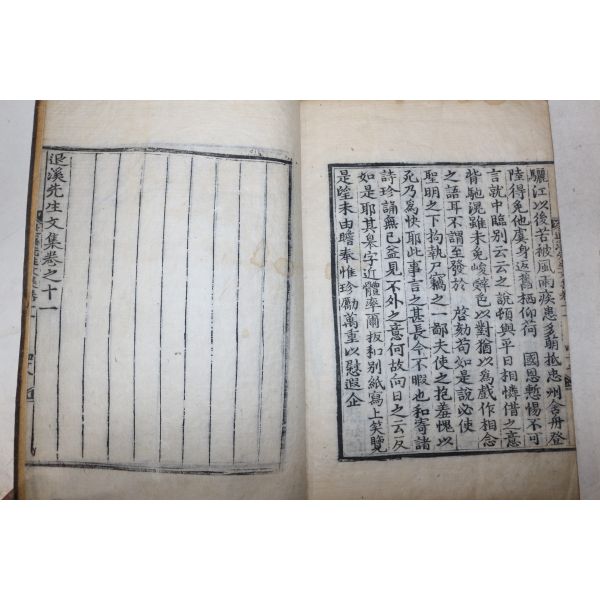 驪江以後苦被風雨疾患多抵忠州舍舟登
陸得免他虞身返舊栖仰荷 國恩慙惕不可
言就中臨别云云之說頓與平日相憐借之意
背馳滉雖未免峻辭色以對猶以爲戯作相念
之語耳不謂至發於 啓劾苟如是說必使
聖明之下拘執尸竊之一鄙夫使之抱羞愧以
死乃爲快耶此事言之甚長今不暇也和寄諸
詩珍誦無已益見不外之意何故向日之云云反
如是耶其皐字近體率爾扳和别紙寫上笑覽
是望未由瞻奉惟珍勵萬重以慰遐企
退溪先生文集卷之十一